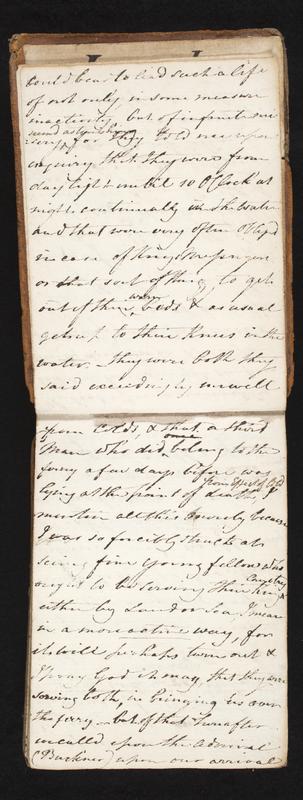 could bear to lead such a life
of not only in some measure
inactivity, but of infinite mi
sery, for they told me upon
enquiry that they were from
day light until 10 O'Clock at
night continually in the water
and that were very often obliged
in case of Kings Messengers
or that sort of thing to get
out of their warm beds & as usual
get up to their knees in the
water. They were both they
said exceedingly unwell
from colds, & that a third
Man who did once belong to the
ferry a few days before was
lying at the point of death from effects of Cold I
mention all this merely because
I was so forcibly struck at
seeing fine young fellows who
ought to be serving their King & Country
either by Land or Sea, I mean
in a more active way, for
it will perhaps turn out &
I pray God it may, that they were
serving both, in bringing us over
the ferry - but of that hereafter
we called upon the Admiral
(Buckner) upon our arrival